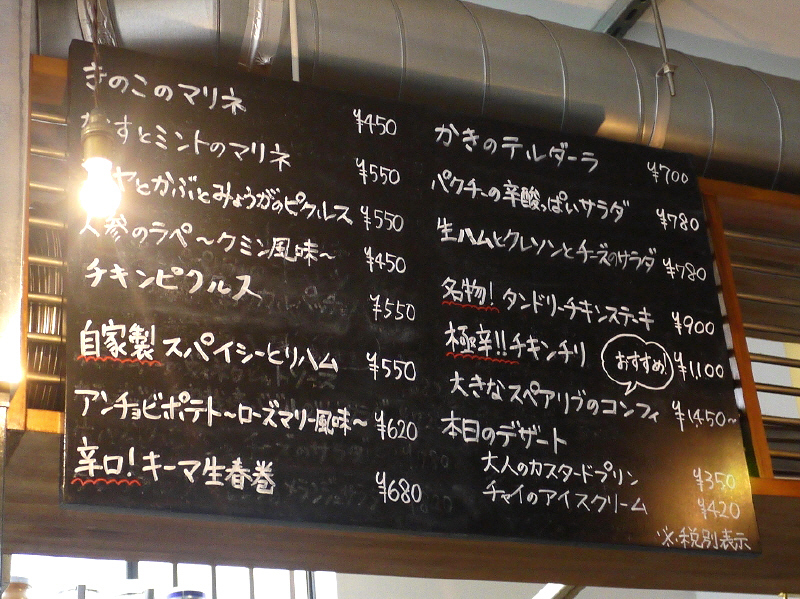 きのこのマリネ ¥450
すとミントのマリネ ¥550
ヤとかぶとみょうがのピクルス ¥550
人参のラペ〜クミン風味〜 ¥450
チキンピクルス ¥550
自家製スパイシーとりハム ¥550
アンチョビポテト〜ローズマリー風味〜 ¥620
辛口!キーマ生春巻 ¥680
かきのテルダーラ ¥700
パクチーの辛酸っぱいサラダ ¥780
生ハムとクレソンとチーズのサラダ ¥780
名物!タンドリーチキンステーキ ¥900
極辛!!チキンチリ おすすめ! ¥1,100
大きなスペアリブのコンフィ ¥1,450〜
本日のデザート
大人のカスタードプリン ¥350
チャイのアイスクリーム ¥420
※税別表示